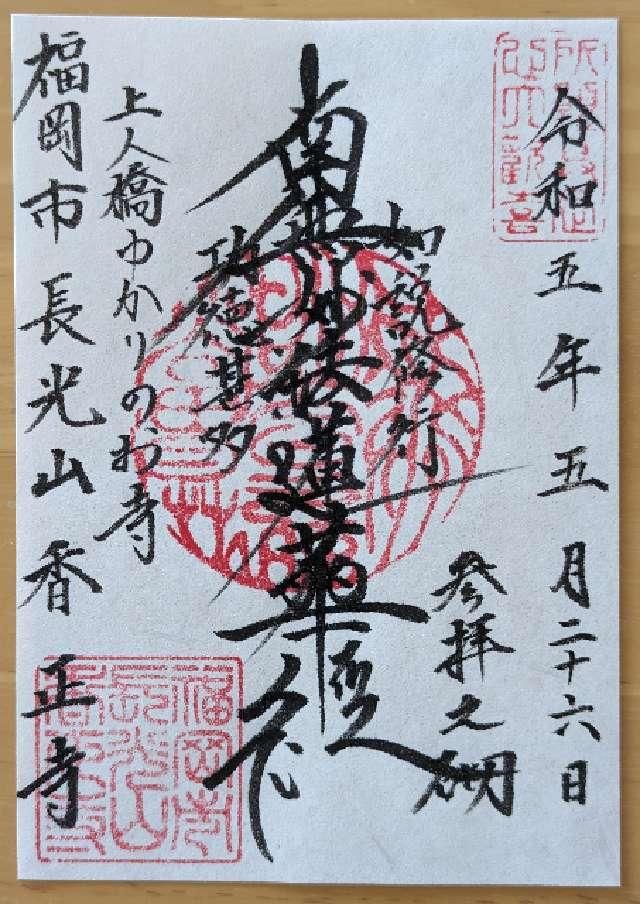 令和五年五月二十六日
参拝之砌
如説修行
南無妙法蓮華経
功徳甚多
上人橋ゆかりのお寺
福岡市長光山香正寺
福岡市
長光山
香正寺